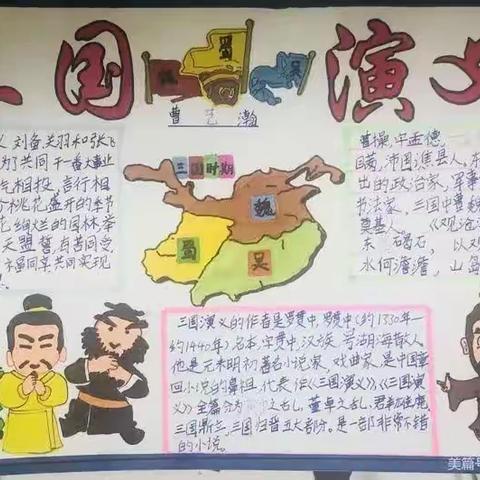 三国演义
魏 蜀 吴
曹艺瀚
义 刘备、关羽和张飞
为了共同干一番大事业
气相投,言行相
个桃花盛开的季节
花绚烂的园林举
天盟誓有共同受
福同享共同实现
三国时期
魏
蜀
吴
曹操,字孟德,一
瞒,沛国谯县人,东
出的政治家,军事
书法家,三国中曹魏
奠基人。《观沧
东 碣石,以观
水何澹澹,山岛
三国演义的作者是罗贯中,罗贯中(约1330年一
约1440年),名本,字贯中,汉族,号湖海散人,
他是元末明初著名小说家,戏曲家,是中国章
回小说的鼻祖,代表作《三国演义》,《三国演
义》全篇分为 之乱,董卓之乱,群 逐鹿,
三国鼎立,三国归晋五大部分。是一部非常不错
的小说。
美篇号